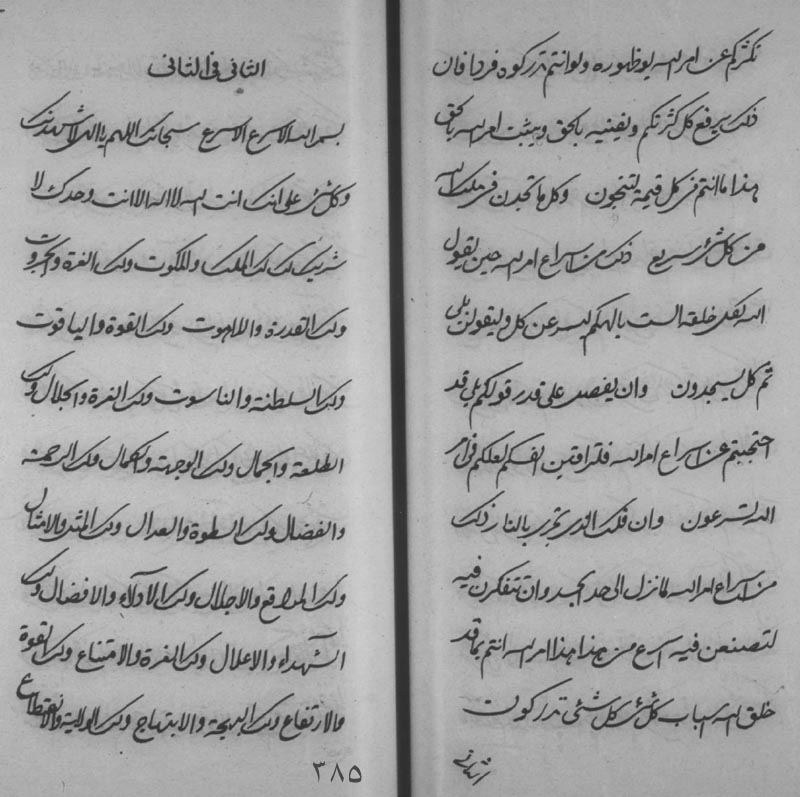 تكثركم عن امر الله يوم ظهوره ولو انتم تدركوه فردا فان
ذلك يرفع كل كثرتكم ويفنيه بالحق ويثبت امر الله بالحق
هذا ما انتم في كل قيمة لتنجون وكل ما تجدن في ملك الله
من كل شئ سريع ذلك من اسراع امر الله حين يقول
الله لقد خلقه الست بالهكم ليسرعن كل وليقولن بلى
ثم كل يسجدون وان يفصل على قدر قولكم بلى قد
احتجبتم عن اسراع امر الله فلتراقبن انفسكم لعلكم في امر
الله تسرعون وان فلك الذى تجرى بالنار ذلك
من اسراع امر الله لما نزل الى حد الجسد وان تتفكرن فيه
لتصنعن فيه اسرع من هذا هذا امر الله انتم بما قد
خلق الله اسباب كل شئ كل شئ تدركون
الثانى فى الثانى
بسم الله الاسرع الاسرع سبحانك اللهم يا الهى لاشهدنك
وكل شئ على انك انت الله لا اله الا انت وحدك لا
شريك لك لك الملك والملكوت ولك العزة والجبروت
ولك القدرة واللاهوت ولك القوة والياقوت
ولك السلطنة والناسوت ولك العزة والجلال ولك
الطلعة والجمال ولك الوجهة والكمال ولك الرحمة
والفضال ولك السطوة والعدال ولك المثل والامثال
ولك المواقع والاجلال ولك الادلاء والافضال ولك
الشهداء والاعلال ولك العزة والامتناع ولك القوة
والارتفاع ولك البهجة والابتهاج ولك الولاية والانقطاع
٣٨٥